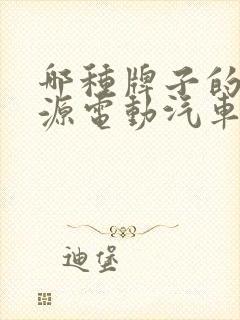 哪種牌子的
源電動汽車
迪堡